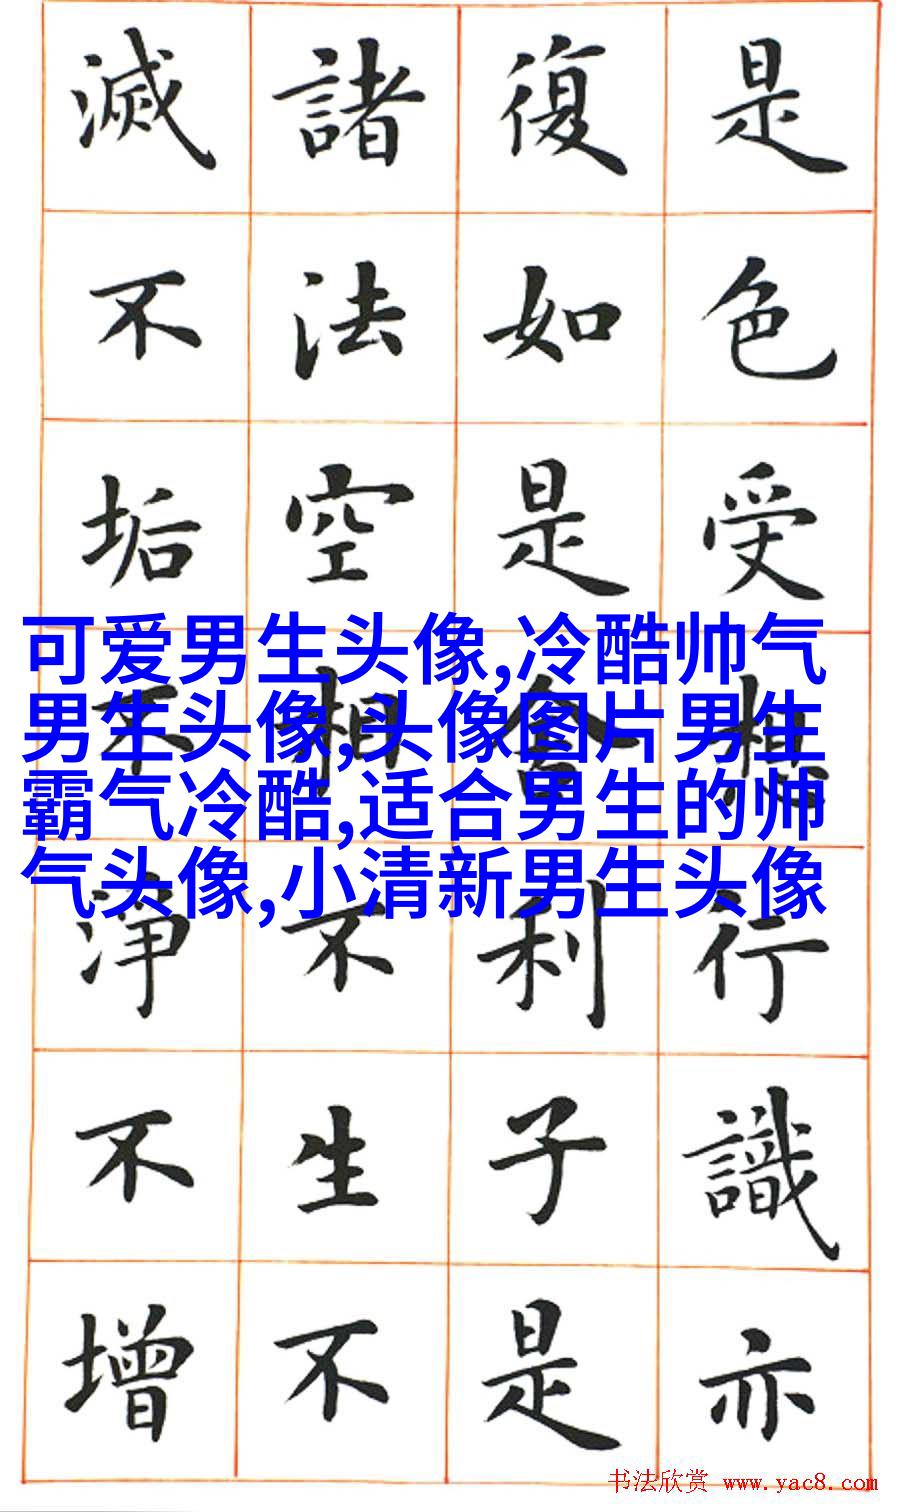 是色受想行識亦
復如是舍利子是
諸法空相不生不
滅不垢不淨不增
可爱男生头像,冷酷帅气
男生头像,头像图片男生
霸气冷酷,适合男生的帅
气头像,小清新男生头像
书法欣赏 www.yac8.com